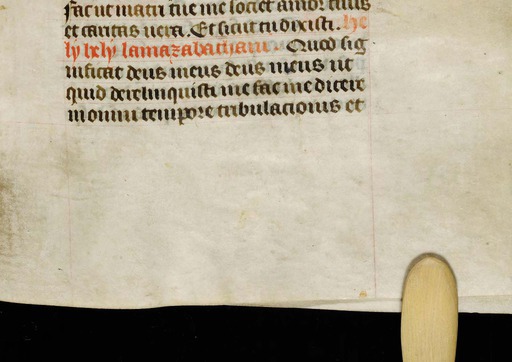 fac ut matri tue me societ amor tuus
et caritas uera. Et sicut tu dixisti. he
ly hely lamazabathani. Quod sig
nificat deus meus deus meus ut
quid dereliquisti me fac me dicere
in omni tempore tribulacionis et